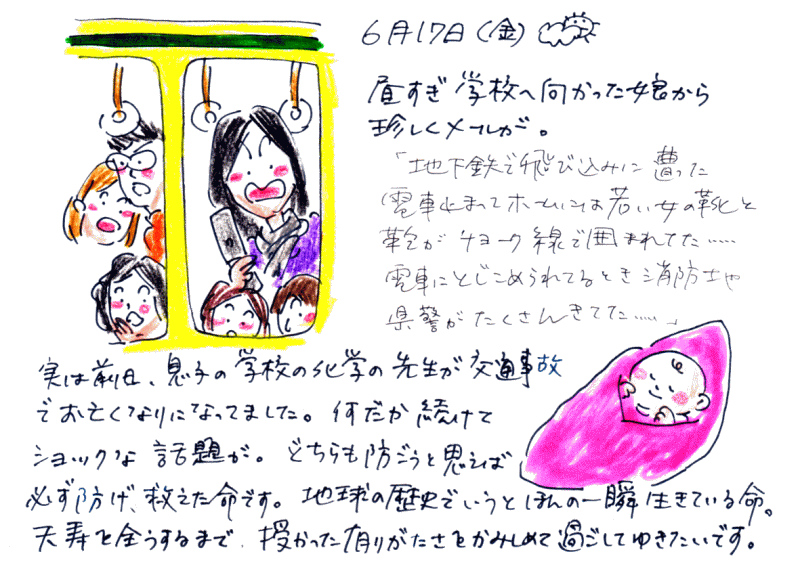 6月17日（金）
昼すぎ 学校へ向かった娘から
珍しくメールが。
「地下鉄で飛び込みに遭った
電車止まって ホームには若い女の靴と
鞄が チョーク線で囲まれてた……
電車にとじこめられてるとき消防士や
県警がたくさんきてた……」
実は前日、息子の学校の化学の先生が交通事故
でお亡くなりになってました。何だか続けて
ショックな話題が。どちらも防ごうと思えば
必ず防げ、救えた命です。地球の歴史でいうとほんの一瞬生きている命。
天寿を全うするまで、授かった有りがたさをかみしめて過ごしてゆきたいです。